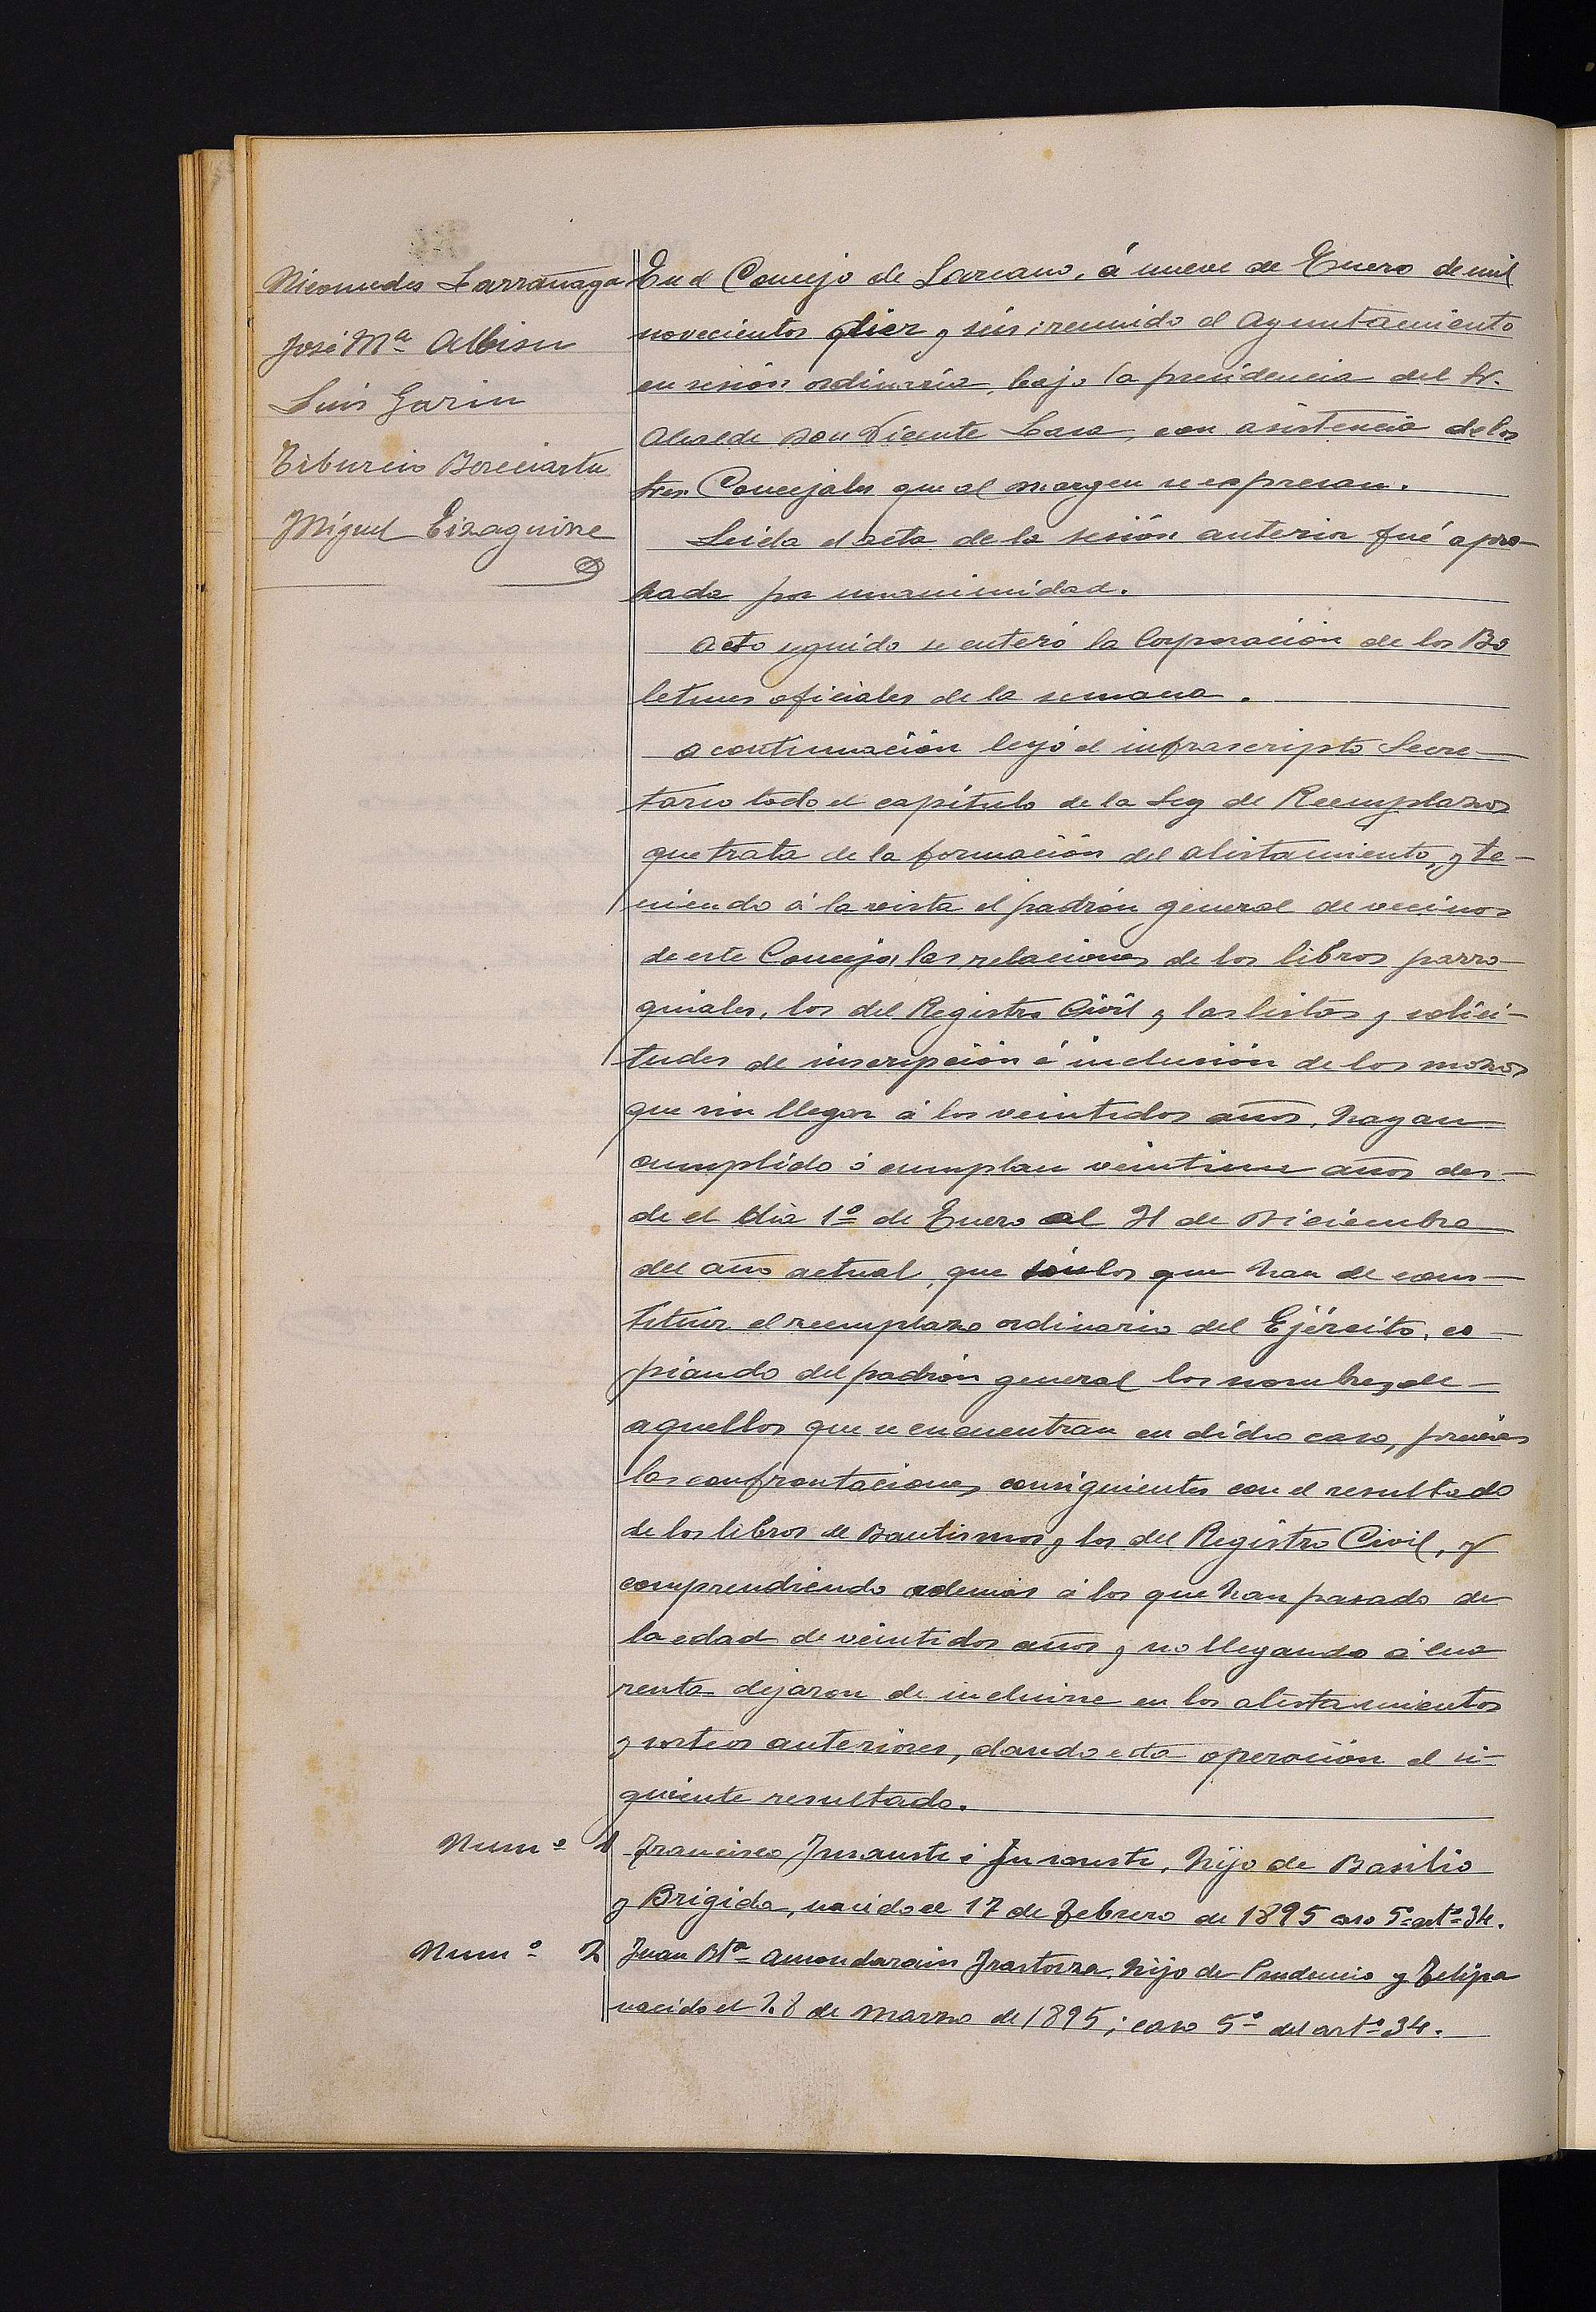 Nicomedes Larrañaga
José Mª Albisu
Luis Garin
Tiburcio Bereciartu
Miguel Eizaguirre
En el Concejo de Lazcano, á nueve de Enero de mil
novecientos diez y seis; reunido el Ayuntamiento
en sesión ordinaria, bajo la presidencia del Sr.
Alcalde Don Vicente Lasa, con asistencia de los
Sres. Concejales que al margen se expresan.
Leida el acta de la sesión anterior fué apro-
bada por unanimidad.
Acto seguido se enteró la Corporación de los Bo
letines oficiales de la semana.
A continuación leyó el infrascripto Secre-
tario todo el capítulo de la Ley de Reemplazos
que trata de la formación del alistamiento, y te-
niendo á la vista el padrón general de vecinos
de este Concejo, las relaciones de los libros parro-
quiales, los del Registro Civil y las listas y solici-
tudes de inscripción é inclusión de los mozos
que sin llegar á los veintidos años, hayan
cumplido ó cumplan veintiun años des-
de el dia 1º de Enero al 31 de Diciembre
del año actual, que son los que han de cons-
tituir el reemplazo ordinario del Ejército, co-
piando del padrón general los nombres de
aquellos que se encuentran en dicho caso, previas
las confrontaciones consiguientes con el resultado
de los libros de Bautismos y los del Registro Civil, y
comprendiendo además á los que han pasado de
la edad de veintidos años y no llegando á cua
renta dejaron de incluirse en los alistamientos
y sorteos anteriores, dando esta operación el si-
guiente resultado.
Numº 1 Francisco Insausti é Insausti, hijo de Basilio
y Brigida, nacido el 17 de Febrero de 1895 caso 5º artº 34.
Numº 2 Juan Btª Amondarain Irastorza, hijo de Prudencio y Felipa
nacido el 28 de Marzo de 1895; caso 5º del artº 34.